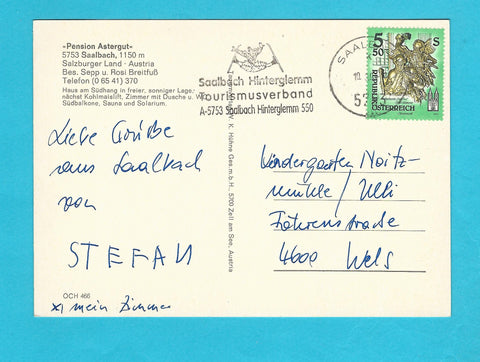 «Pension Astergut»
5753 Saalbach, 1150 m
Salzburger Land · Austria
Bes. Sepp u. Rosi Breitfuß
Telefon (0 65 41) 370
Haus am Südhang in freier, sonniger Lage;
nächst Kohlmaislift, Zimmer mit Dusche u. W
Südbalkone, Sauna und Solarium.
Saalbach Hinterglemm
Tourismusverband
A-5753 Saalbach Hinterglemm 550
SAALB
5 S
50
REPUBLIK
ÖSTERREICH
K. Höhne Ges.m.b.H., 5700 Zell am See, Austria
Liebe Grüße
aus Saalbach
von
STEFAN
Kindergarten Noitz-
mühle / Ulli
Föhrenstraße
4600 Wels
OCH 466
x) mein Zimmer